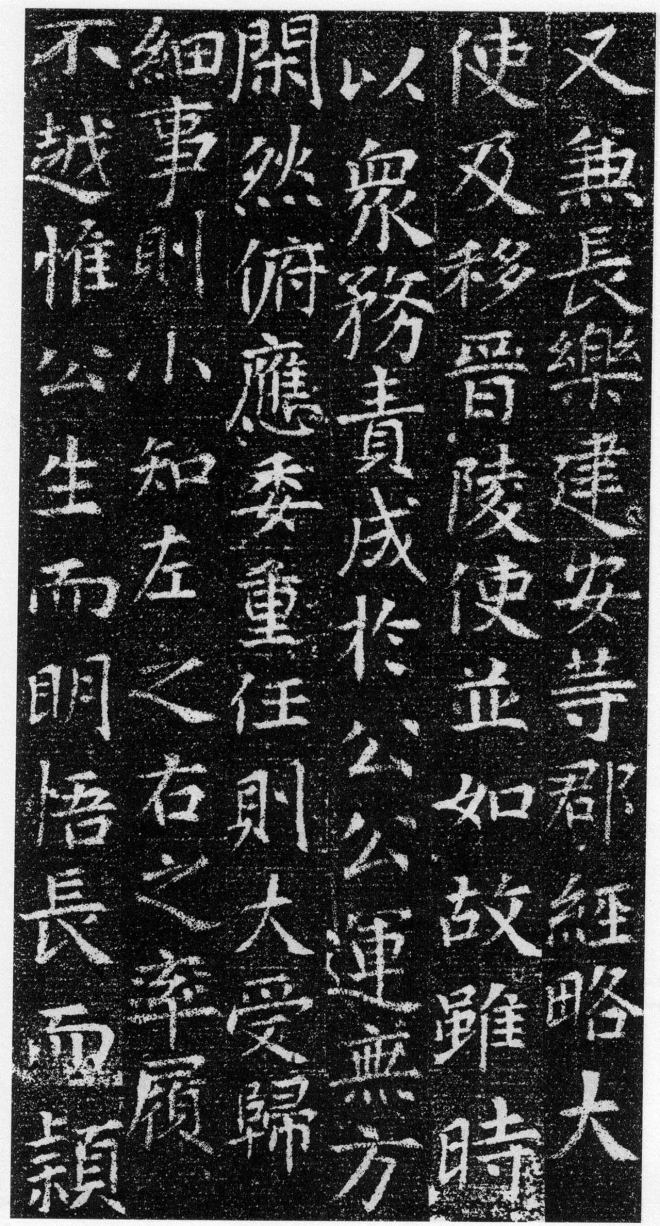 又兼長樂建安等郡經略大
使及移晉陵使並如故雖時
以衆務責成於公公運無方
閑然俯應委重任則大受歸
細事則小知左之右之率履
不越惟公生而明悟長而穎